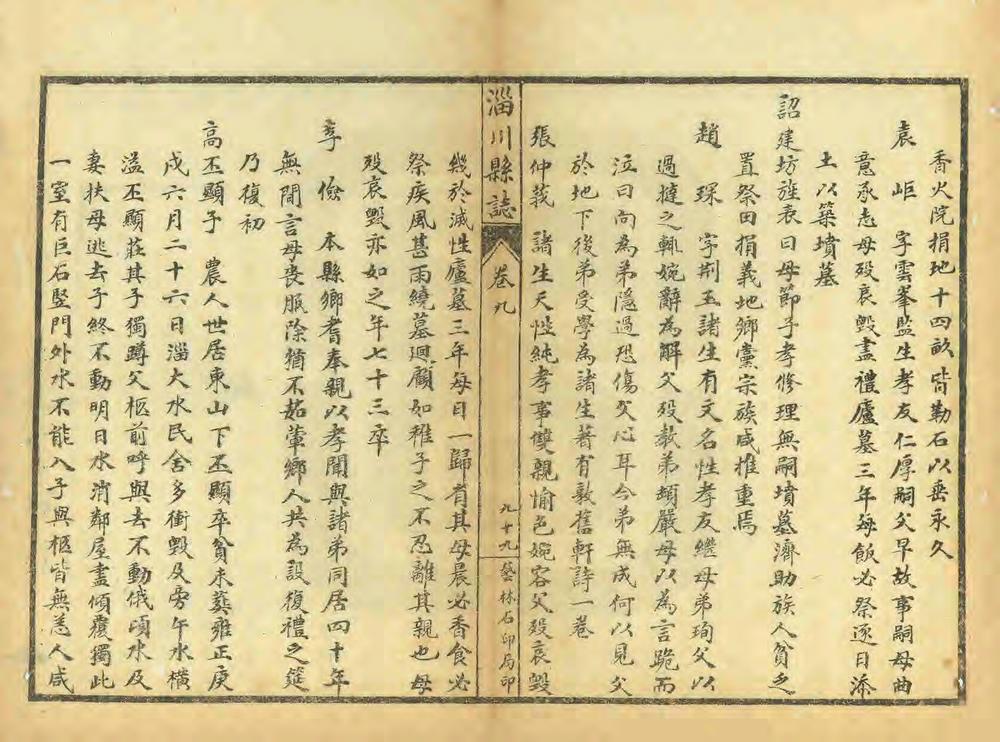 香火院捐地十四畝皆勒石以垂永久
袁岠 字雲峯監生孝友仁厚嗣父早故事嗣母曲
意承志母歿哀毀盡禮廬墓三年每飯必祭逐日添
土以築墳墓
詔建坊旌表曰母節子孝修理無嗣墳墓濟助族人貧乏
置祭田捐義地鄉黨宗族咸推重焉
趙琛 字荆玉諸生有文名性孝友繼母弟珣父以
過撻之輒婉辭為解父歿教弟頗嚴母以為言跪而
泣曰向為弟隱過恐傷父心耳今弟無成何以見父
於地下後弟受學為諸生著有敦舊軒詩一卷
張仲義 諸生天性純孝事雙親愉色婉容父歿哀毀
淄川縣誌
卷九
九十九
藝林石印局印
幾於滅性廬墓三年每日一歸省其母晨必香食必
祭疾風甚雨繞墓迴顧如稚子之不忍離其親也母
歿哀毀亦如之年七十三卒
李儉 本縣鄉耆奉親以孝聞與諸弟同居四十年
無間言母喪服除猶不茹葷鄉人共為設復禮之筵
乃復初
高丕顯子 農人世居東山下丕顯卒貧未葬雍正庚
戌六月二十六日淄大水民舍多衝毀及旁午水橫
溢丕顯莊其子獨蹲父柩前呼與去不動俄頃水及
妻扶母逃去子終不動明日水消鄰屋盡傾覆獨此
一室有巨石竪門外水不能入子與柩皆無恙人咸